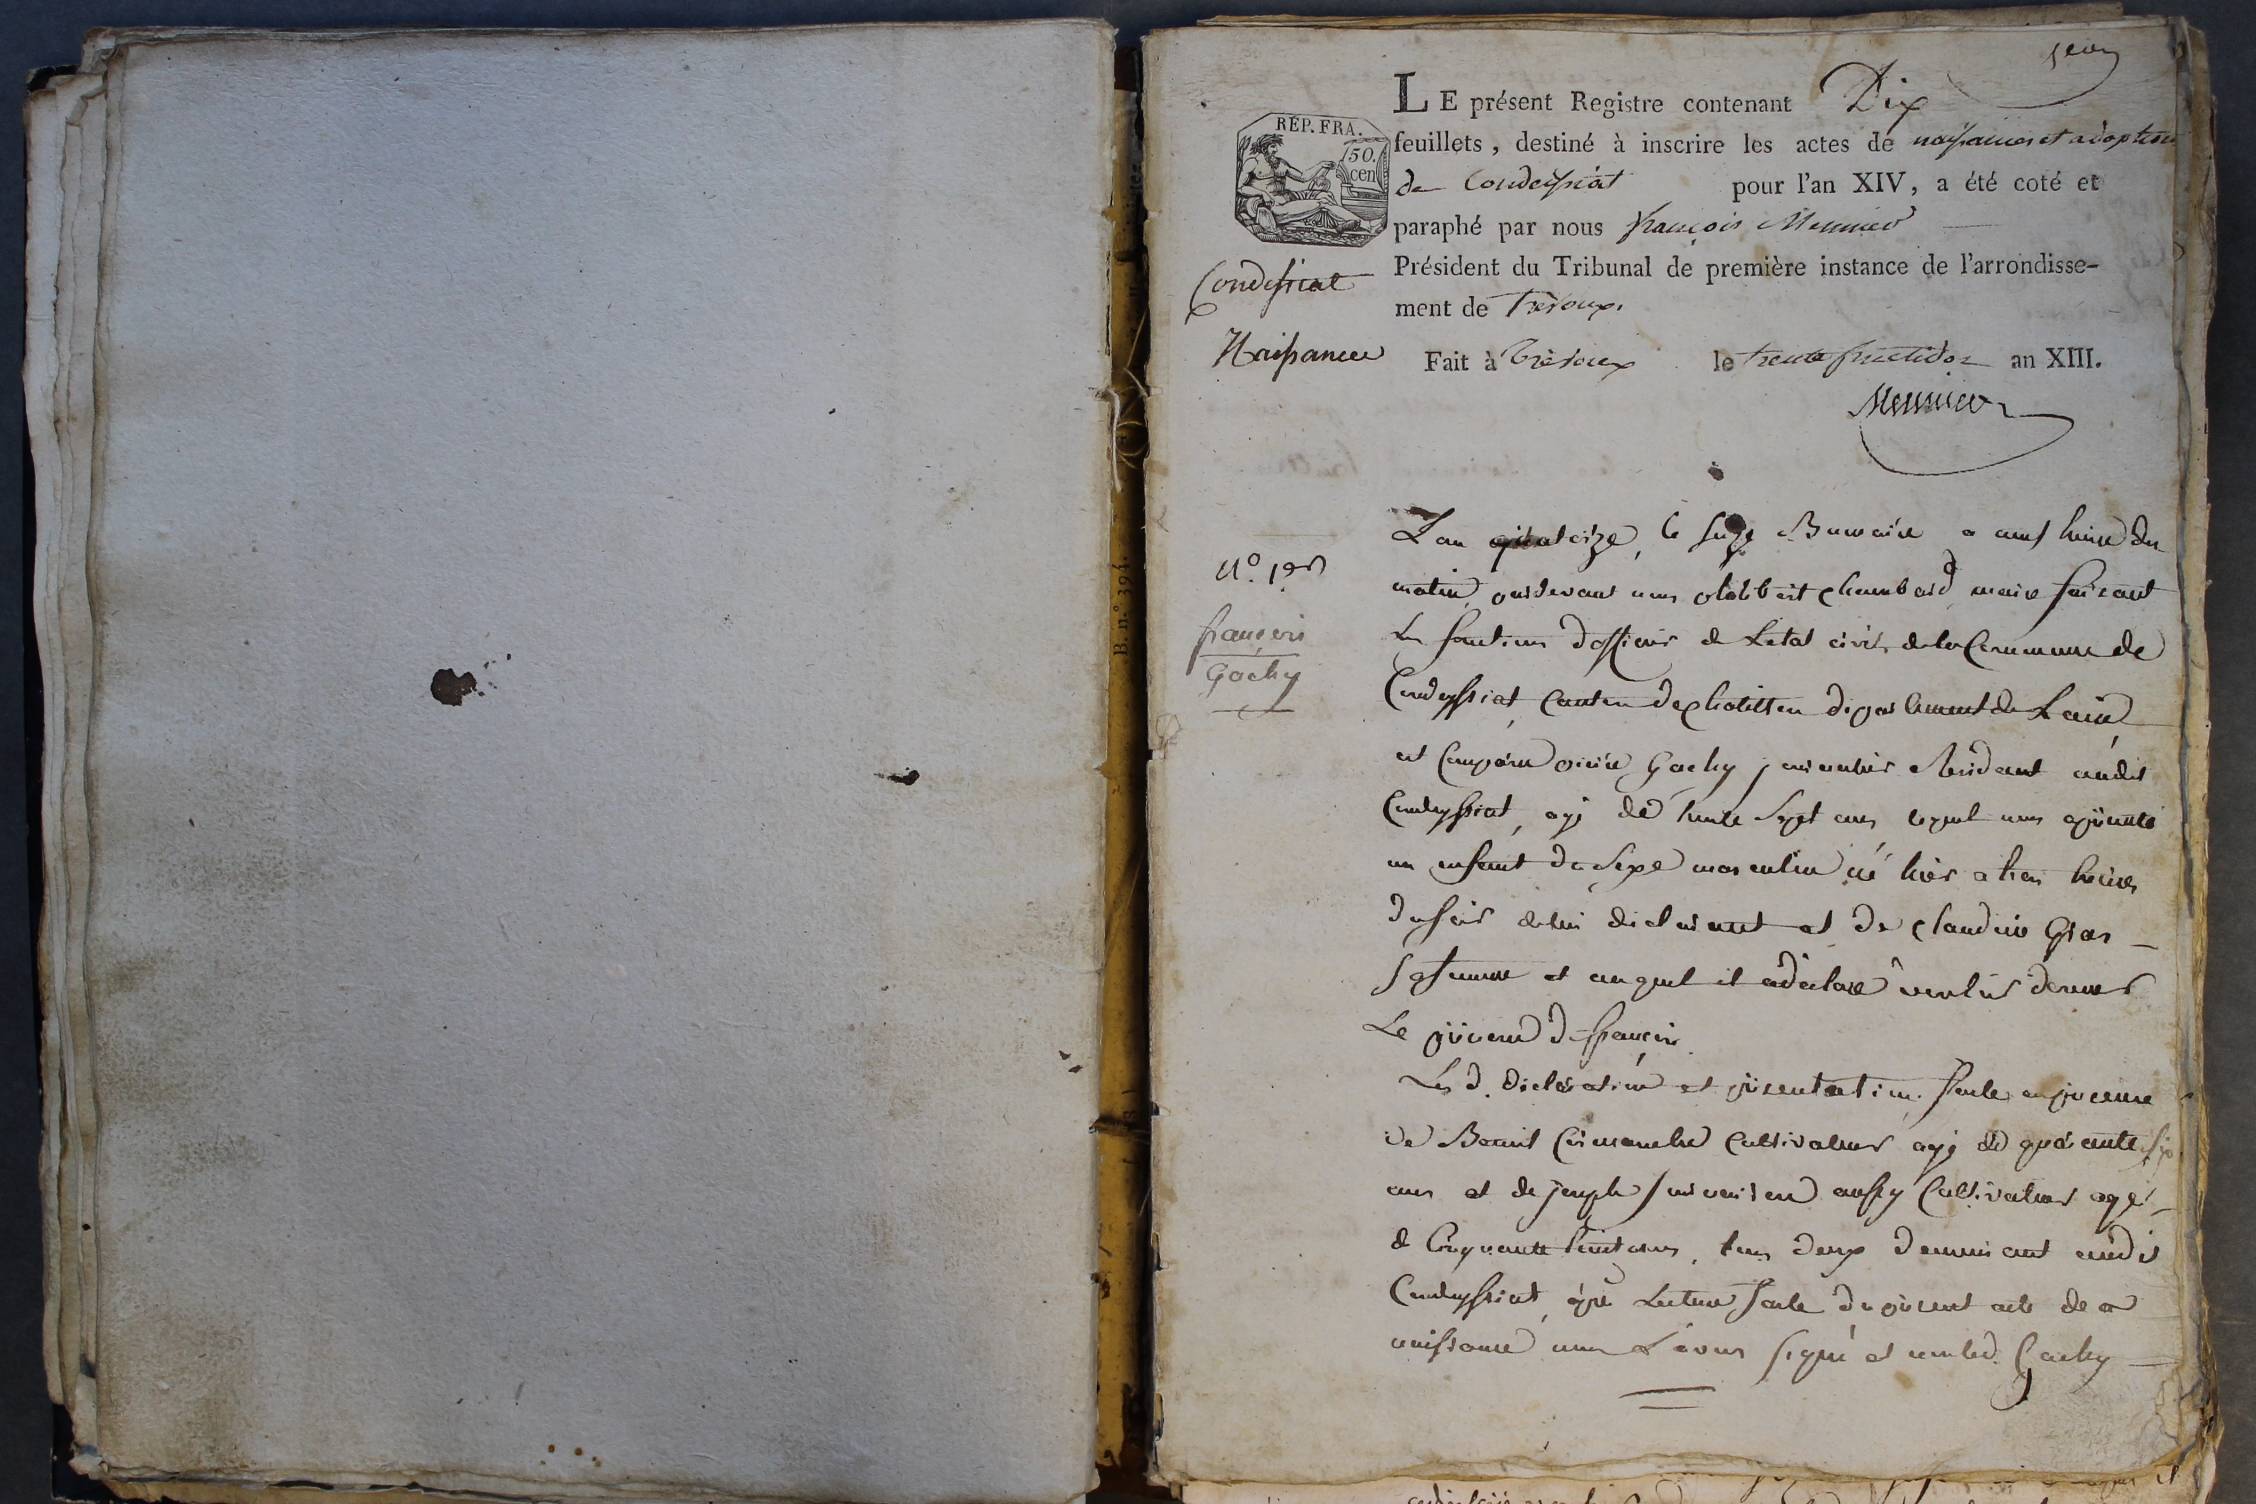 REP. FRA.
50.
cen
LE présent Registre contenant Dix
feuillets, destiné à inscrire les actes de naissances et adoption
de Condeissiat pour l'an XIV, a été coté et
paraphé par nous françois Meunier
Président du Tribunal de première instance de l'arrondisse-
ment de Trévoux.
Fait à Trévoux le trente fructidor an XIII.
Meunier
Condessiat
Naissances
B. n.º 394.
N.º 1er
françois
Gachy
L'an quatorze, le seize Brumaire a neuf heures du
matin, pardevant nous philibert Chambard maire faisant
Les fonctions d'officier de Letat civil de la Commune de
Condeyssiat Canton de Chatillon département de Lain
est Comparu Gachy résidant audit
Condeyssiat, agé de trente sept ans lequel nous a présenté
un enfant du Sexe masculin né hier a trois heures
du soir de lui déclarant et de Claudine Gras
sa femme et auquel il a déclaré vouloir donner
Le prénom de françois
Les d. déclaration et présentation faite en présence
de Benoit Cultivateur agé de quarante six
ans et de joseph aussy Cultivateur agé
de Cinquante huit ans, tous deux demeurant audit
Condeyssiat, après Lecture faite du présent acte de
naissance nous L'avons signé et non led. Gachy